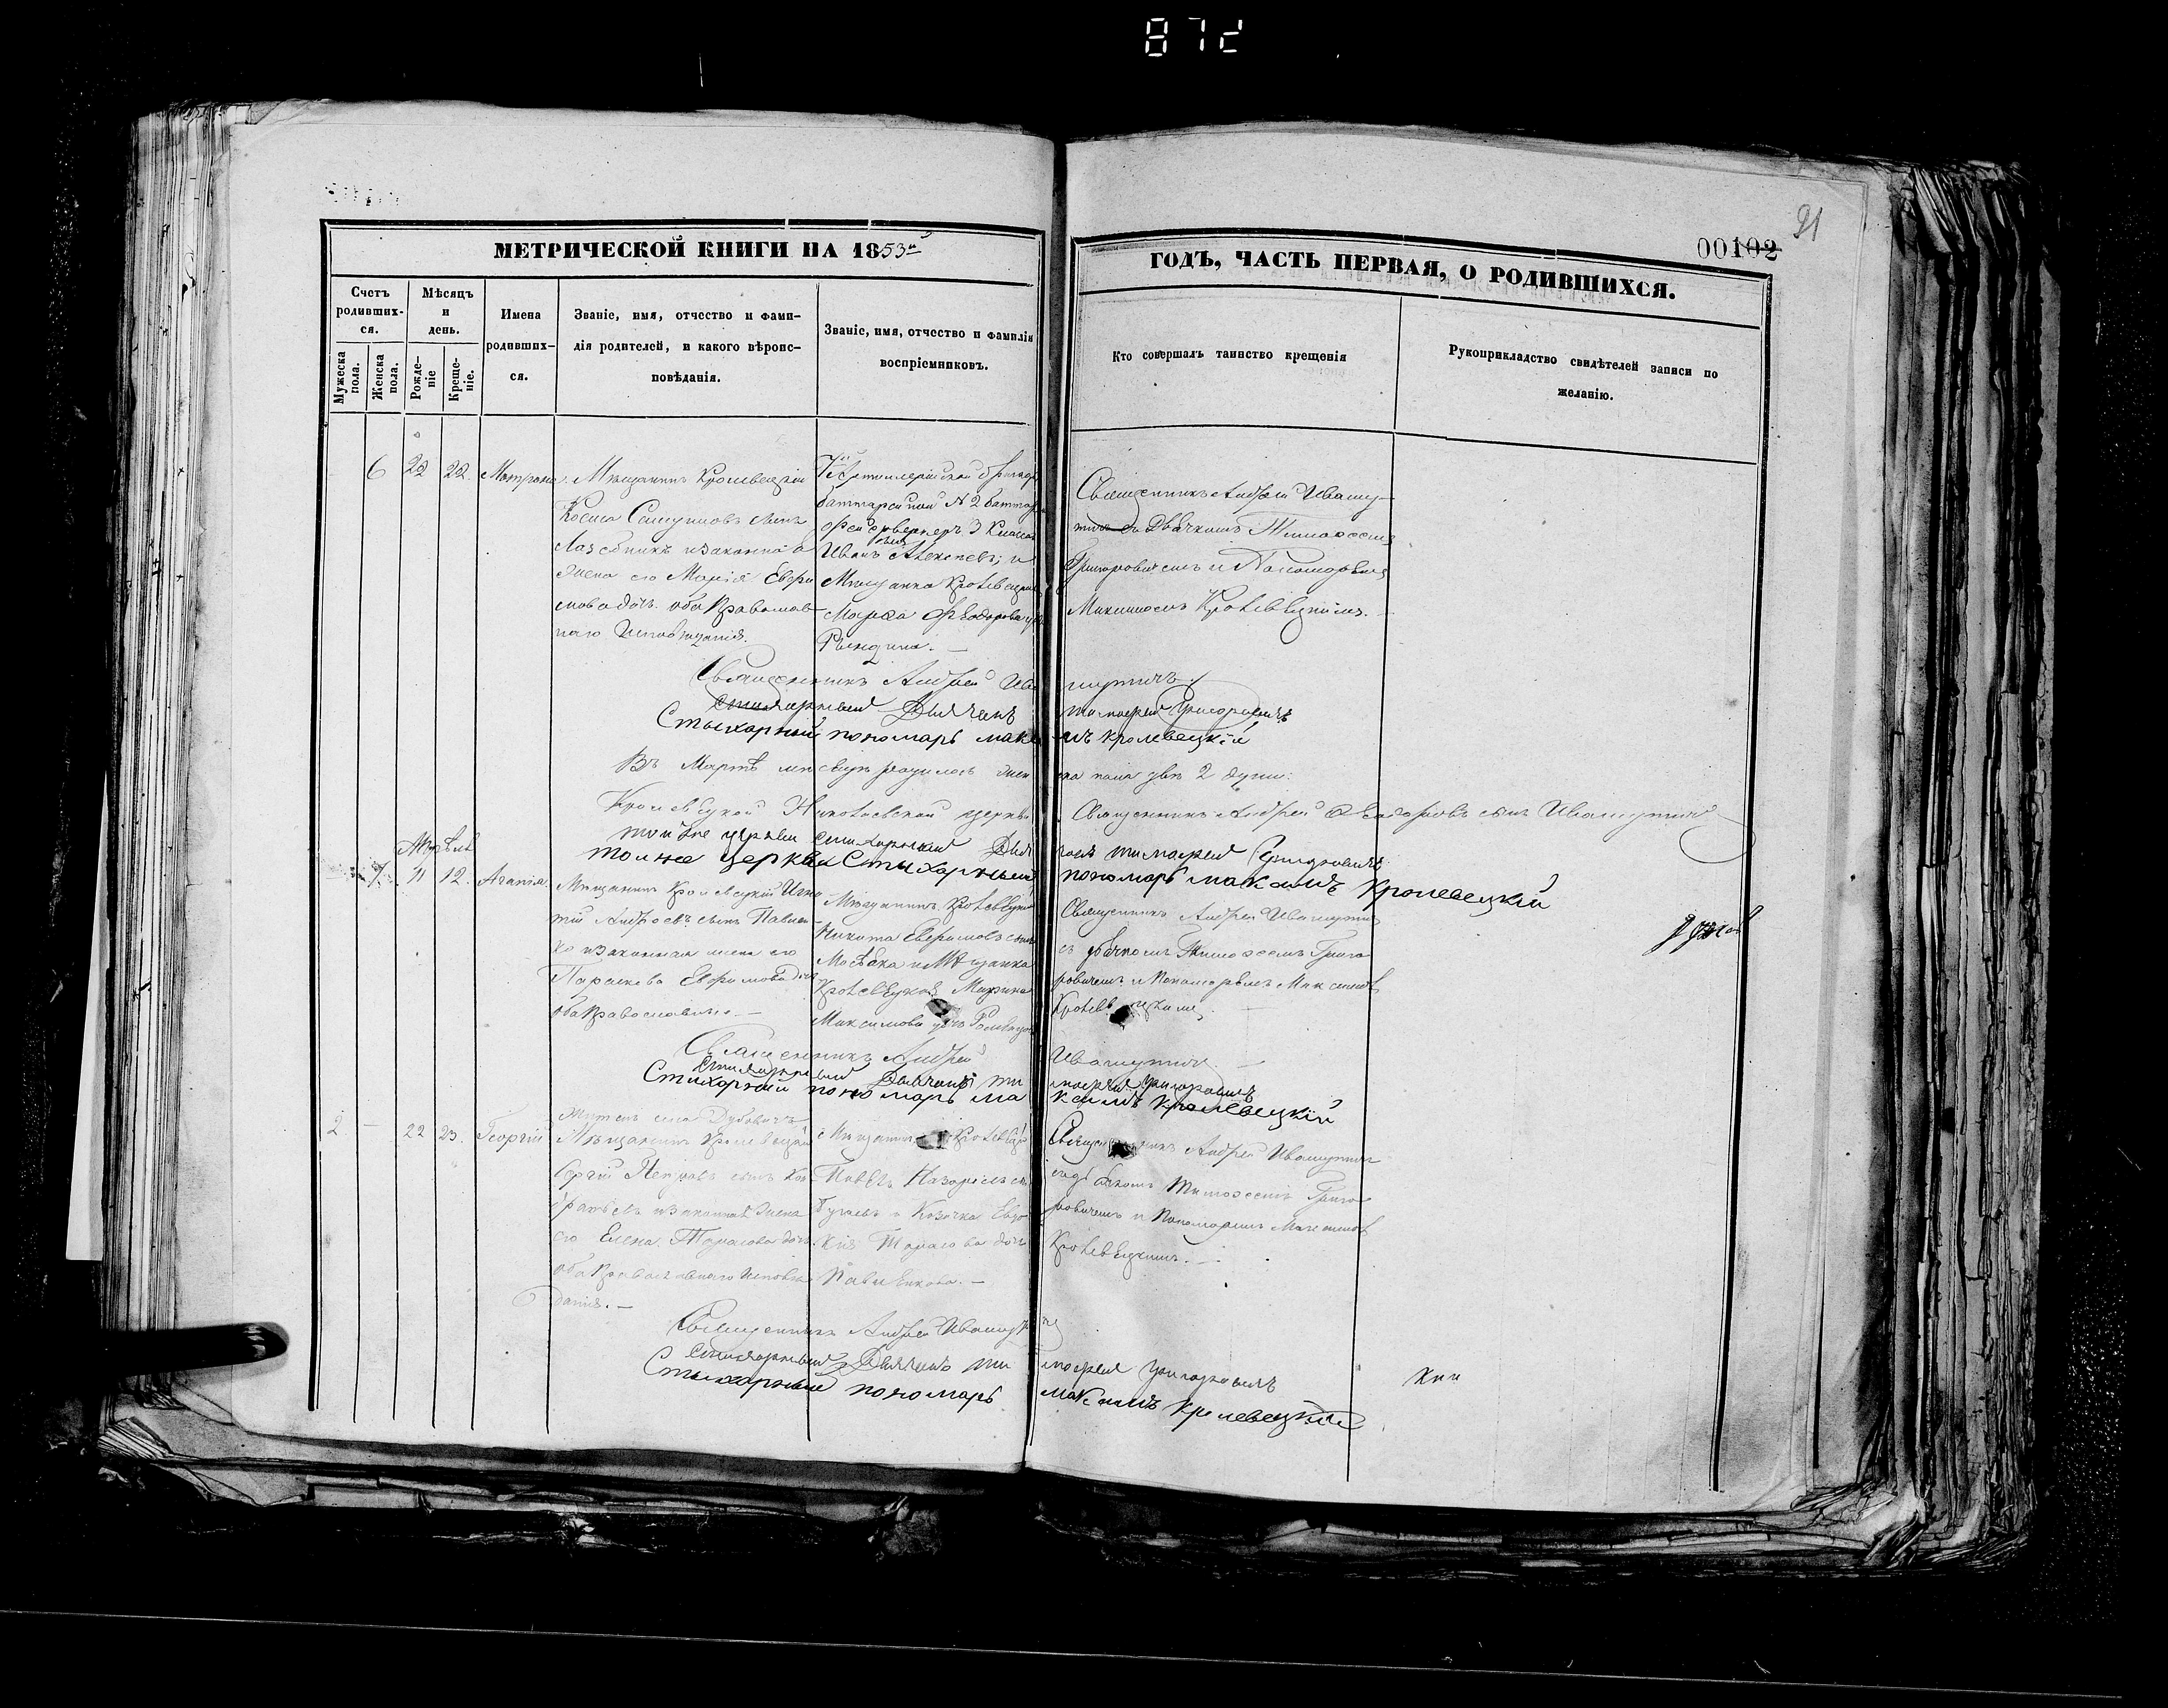 872
91
00102
МЕТРИЧЕСКОЙ КНИГИ НА 1853й
ГОДЪ, ЧАСТЬ ПЕРВАЯ, О РОДИВШИХСЯ.
Счетъ родивших-ся.
Мужеска пола.
Женска пола.
Мѣсяцъ и день.
Рожде-ніе
Креще-ніе.
Имена
родивших-
ся.
Званіе, имя, отчество и фами-
лія родителей, и какого вѣроис-
повѣданія.
Званіе, имя, отчество и фамилія
воспріемниковъ.
Кто совершалъ таинство крещенія
Рукоприкладство свидѣтелей записи по
желанію.
6 22 22 Матрона
Мѣщанинъ Кролевецкій
Косма сынъ
Лазебникъ и законная
жена его Марія Евфи
мова дочь оба Православ
наго Исповѣданія.
Артиллерійской бригады
баттарейной N 2 баттареи
3 класса
Иванъ Алексѣевъ; и
Мѣщанка Кролевецкая
Марѳа Ѳеодорова
Рындина. —
Священникъ Андрей Ивашу-
тичь съ Дьячкомъ Тимоѳеемъ
Григоровичемъ и Пономаремъ
Максимомъ Кролевецкимъ.
Священникъ Андрей Ивашутичъ
Стихарный Дьячекъ тимофей Григоровичъ
Стыхарный пономарь максимъ кролевецкій
Въ Мартѣ мѣсяцѣ родилось женска пола двѣ 2 души:
Кролевецкой Николаевской церкви Священникъ Андрей Ѳеодоровъ сынъ Ивашутичъ
той же церкви стихарный Дьячекъ тимофей Григоровичъ
тойже церкви Стыхарный пономарь максимъ Кролевецкій
Апрѣль
7 11 12 Агапія
Мѣщанинъ Кролевецкій Игна
тій Андреевъ сынъ Павлен
ко и законная жена его
Параскева Евфимова дочь
оба Православные. —
Мѣщанинъ Кролевецкій
Никита Евфимовъ сынъ
и Мѣщанка
Кролевецкая Марина
Максимова дочь
Священникъ Андрей Ивашутичъ
съ дьячкомъ Тимоѳеемъ Григо
ровичемъ и Пономаремъ Максимомъ
Кролевецкимъ.
Священникъ Андрей Ивашутичъ
Стихарный Дьячекъ тимофей григоровичъ
Стихарный пономарь максимъ кролевецкій
2 — 22 23 Георгій
Житель села Дубовичъ
Мѣщанинъ Кролевецкій
Петровъ сынъ Кон
дратьевъ и законная жена
его Елена Тарасова дочь
оба Православнаго Исповѣ
данія. —
Мѣщанинъ Кролевецкій
Павелъ Назарьевъ сынъ
и Козачка Евдо
кія Тарасова дочь
Павленкова. —
Священникъ Андрей Ивашутичъ
съ дьячкомъ Тимоѳеемъ Григо
ровичемъ и Пономаремъ Максимомъ
Кролевецкимъ. —
Священникъ Андрей Ивашутичъ
Стихарный Дьячекъ тимофей григоровичъ
Стыхарный пономарь максимъ кролевецкій